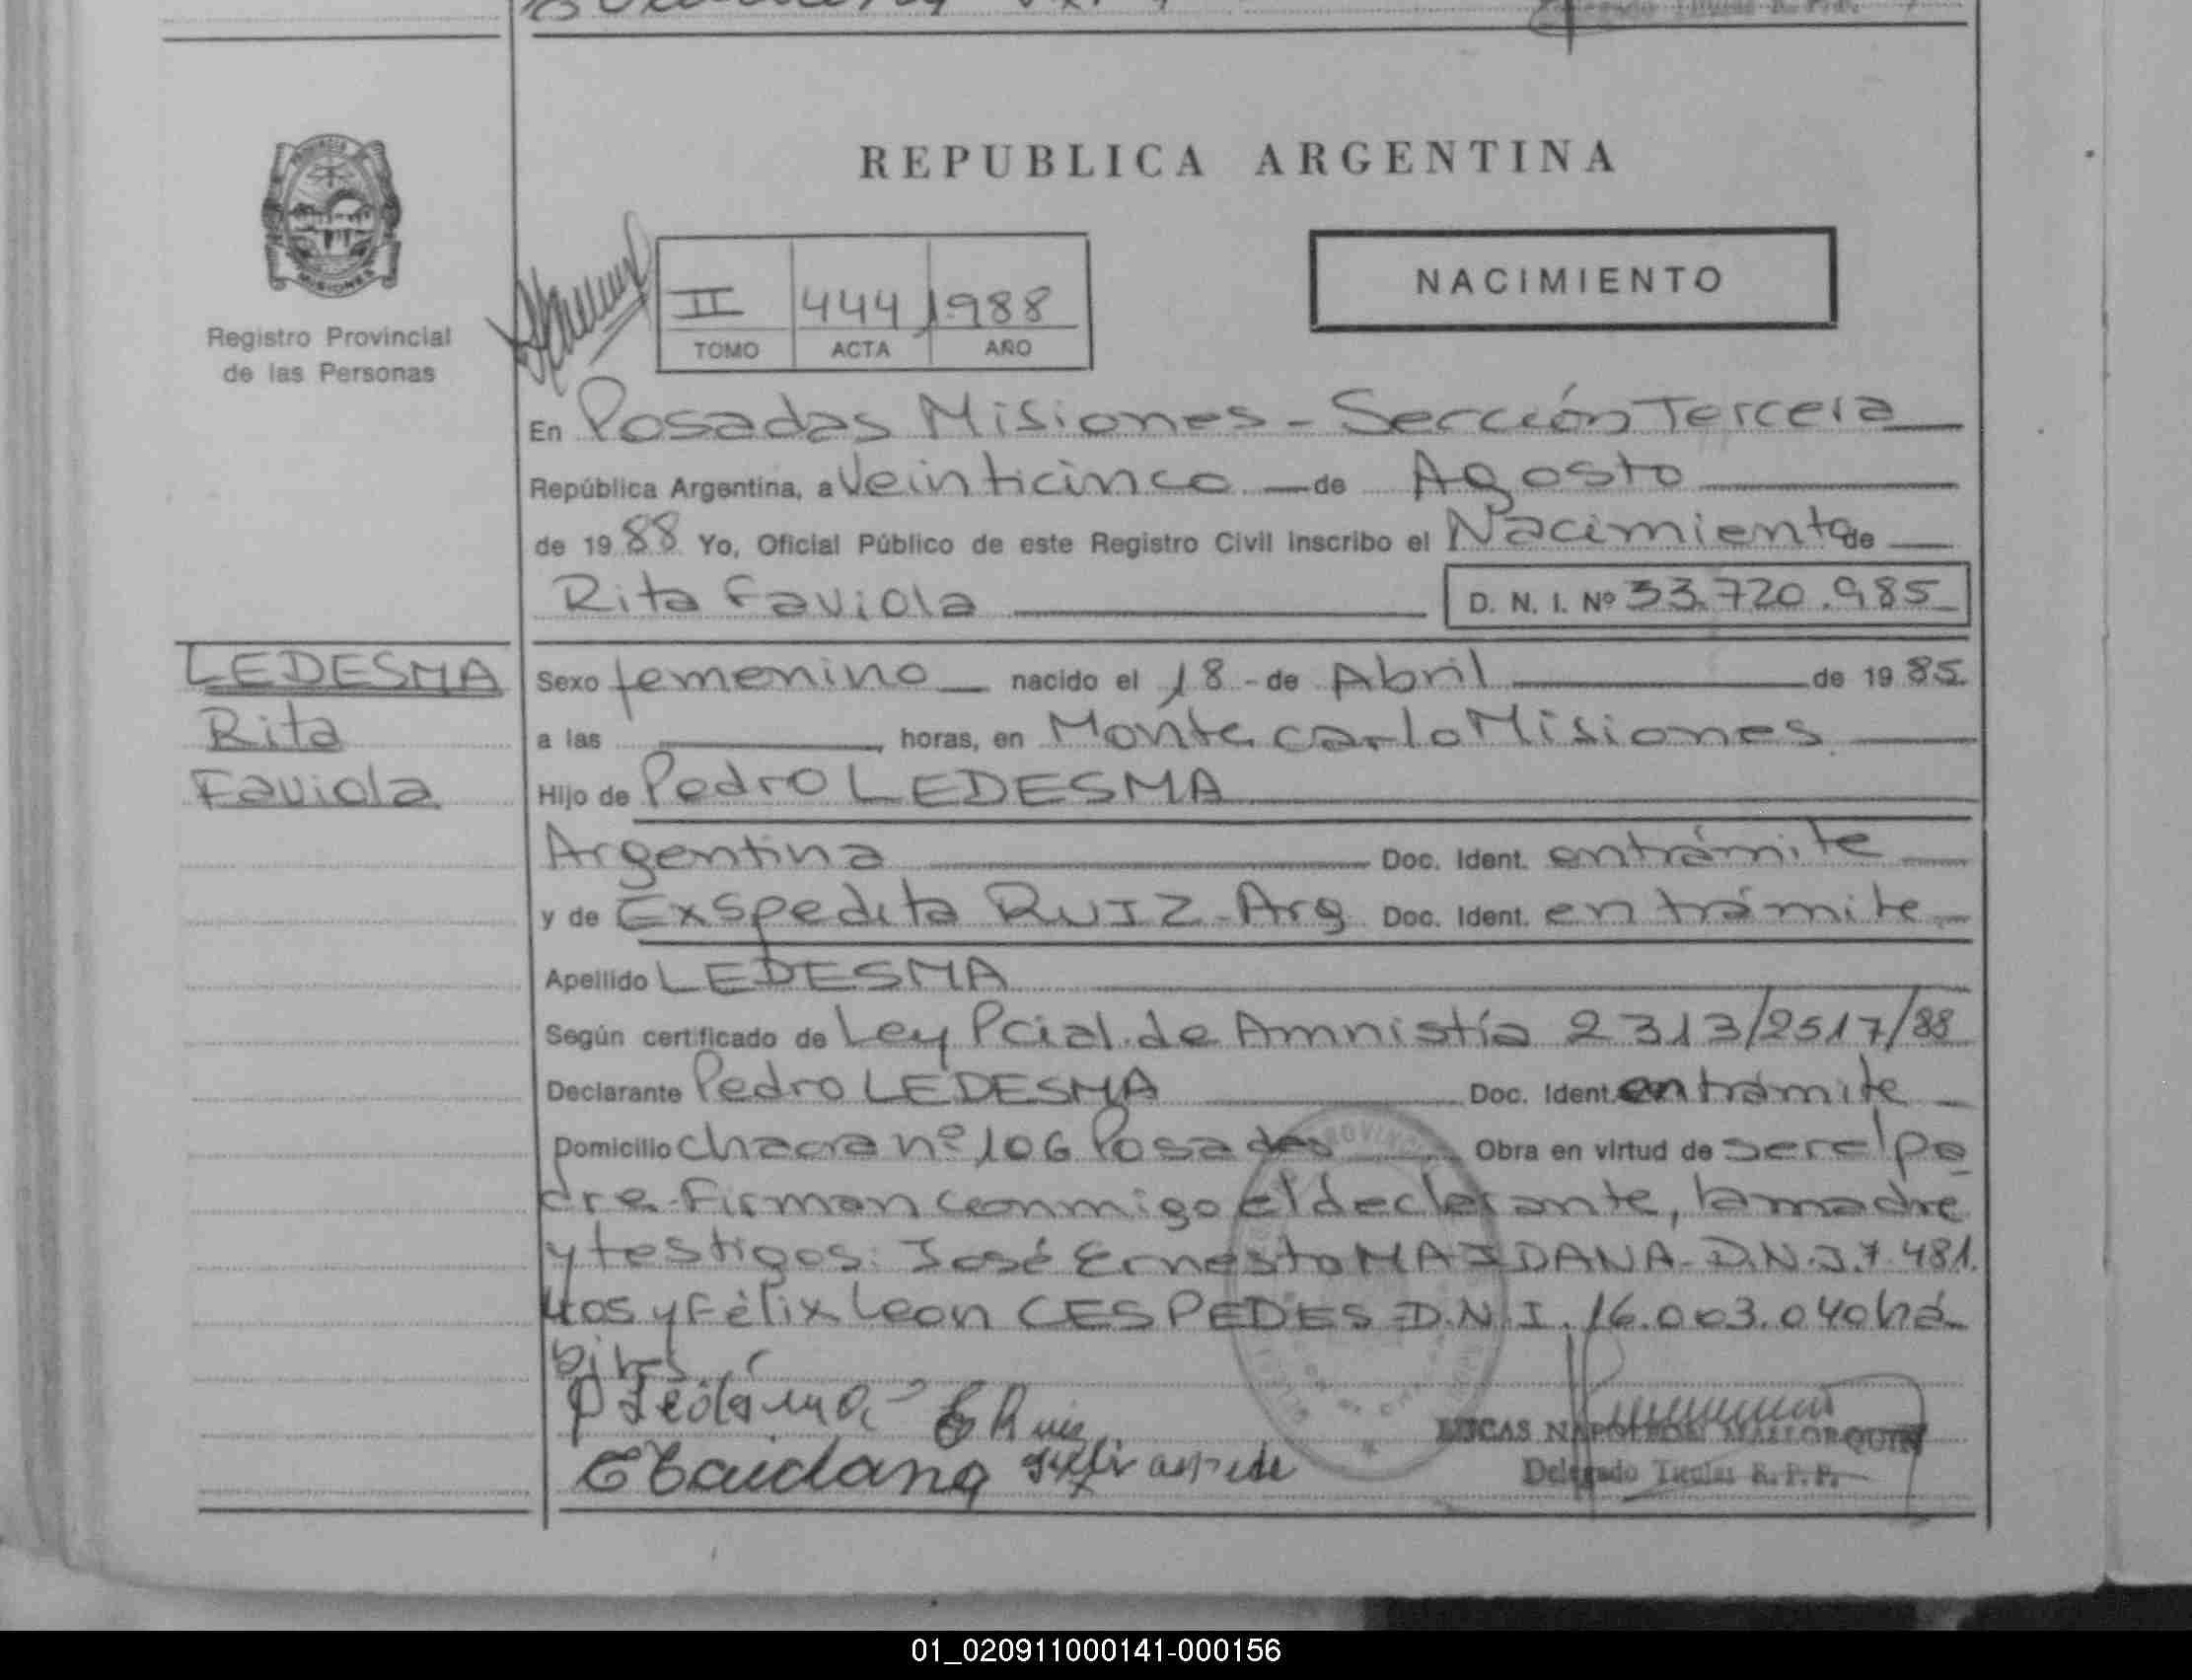 REPUBLICA ARGENTINA
PROVINCIA
MISIONES
Registro Provincial
de las Personas
NACIMIENTO
II 444 1988
TOMO ACTA AÑO
En Posadas Misiones - Sección Tercera
República Argentina, a Veinticinco de Agosto
de 1988 Yo, Oficial Público de este Registro Civil inscribo el Nacimiento de
Rita Faviola D. N. I. Nº 33.720.985
LEDESMA
Rita
Faviola
Sexo femenino nacido el 18 - de Abril de 1985
a las horas, en Monte carlo Misiones
Hijo de Pedro LEDESMA
Argentina Doc. Ident. entrámite
y de Exspedita RUIZ - Arg Doc. Ident. en trámite
Apellido LEDESMA
Según certificado de Ley Pcial. de Amnistía 2313/2517/88
Declarante Pedro LEDESMA Doc. Ident. en trámite
Domicilio chacra nº 106 Posadas Obra en virtud de ser el pa
dre - Firman conmigo el declarante, la madre
y testigos: José Ernesto MAIDANA - D.N.I. 7.481.
405 y Félix Leon CESPEDES D.N.I. 16.003.040 há
biles
E Ruiz
LUCAS NAPOLEON MALLORQUIN
Delegado Titular R.P.P.
01_020911000141-000156